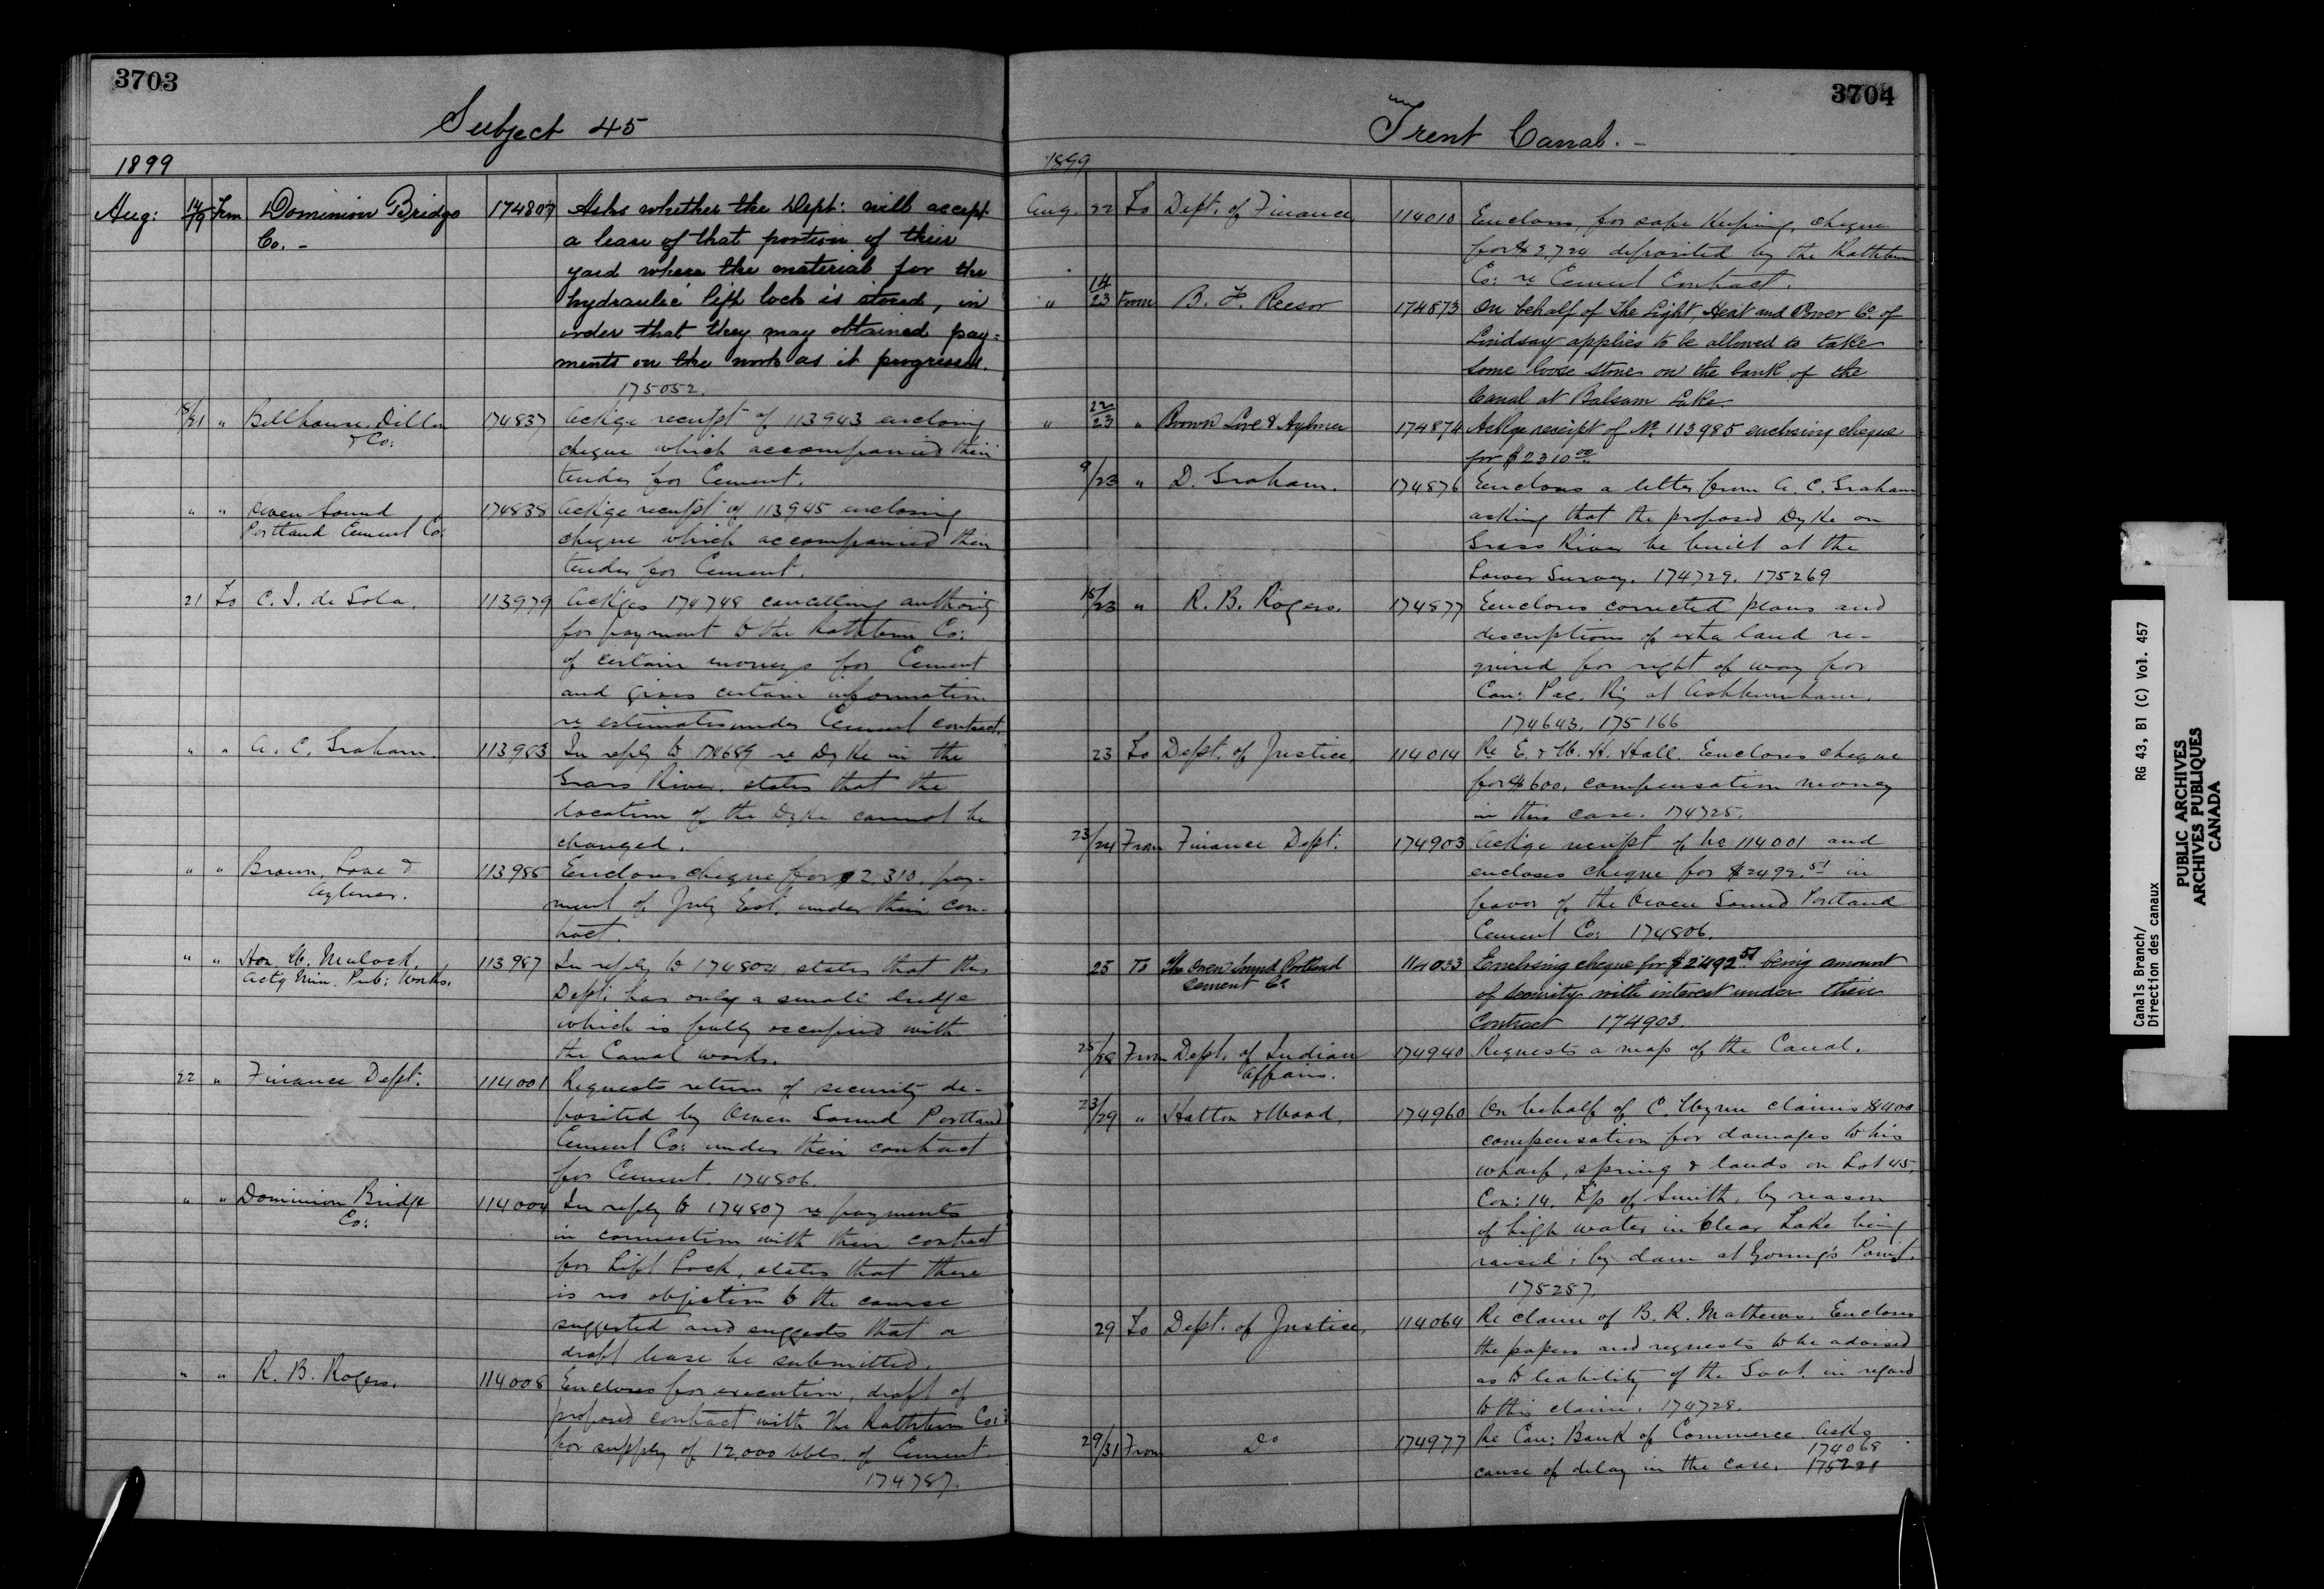 3703
Subject 45
1899
Aug: 14/19 From Dominion Bridge 174807 Asks whether the Dept: will accept
Co. - a lease of that portion of their
yard where the material for the
hydraulic lift lock is stored, in
order that they may obtained pay=
ments on the work as it progresses.
175052.
/21 " Bellhouse, Dillon 174837 Ackge receipt of 113943 enclosing
& Co: cheque which accompanied their
tender for Cement.
" " Owen Sound 174838 Ackge receipt of 113945 enclosing
Portland Cement Co: cheque which accompanied their
tender for Cement.
21 To C. I. de Sola. 113979 Ackges 174748 cancelling authority
for payment to the Rathbun Co:
of certain moneys for Cement
and gives certain information
re estimates under Cement contract.
" " A. C. Graham. 113983 In reply to 174689 re Dyke in the
Grass River. states that the
location of the Dyke cannot be
changed.
" " Brown, Love & 113985 Encloses cheque for $2,310. pay-
Aylmer. ment of July Est. under their con-
tract.
" " Hon. W. Mulock, 113987 In reply to 174804, states that this
Actg Min. Pub: Works. Dept: has only a small dredge
which is fully occupied with
the Canal works.
22 " Finance Dept. 114001 Requests return of security de-
posited by Owen Sound Portland
Cement Co: under their contract
for Cement. 174806.
" " Dominion Bridge 114004 In reply to 174807 re payments
Co: in connection with their contract
for Lift Lock, states that there
is no objection to the course
suggested and suggests that a
draft lease be submitted.
" " R. B. Rogers. 114008 Encloses for execution, draft of
proposed contract with The Rathbun Co:
for supply of 12,000 bbls. of Cement.
174787.
3704
Trent Canal. -
1899
Aug. 22 To Dept. of Finance 114010 Encloses, for safe keeping, cheque
for $2,724 deposited by the Rathbun
Co: re Cement Contract.
" 14/23 From B. F. Reesor 174873 On behalf of The Light, Heat and Power Co. of
Lindsay applies to be allowed to take
some loose stones on the bank of the
Canal at Balsam Lake.
" 22/23 " Brown Love & Aylmer 174874 Ackge receipt of No. 113985 enclosing cheque
for $2310.00
9/23 " D. Graham. 174876 Encloses a letter from A. C. Graham
asking that the proposed Dyke on
Grass River be built at the
Lower Survey. 174729. 175269
15/23 " R. B. Rogers. 174877 Encloses corrected plans and
descriptions of extra land re-
quired for right of way for
Can: Pac. Ry at Ashburnham.
174643. 175166
23 To Dept. of Justice, 114014 Re E. & W. H. Hall. Encloses cheque
for $600, compensation money
in this case. 174725.
23/24 From Finance Dept. 174903 Ackge receipt of No 114001 and
encloses cheque for $2492.51 in
favor of the Owen Sound Portland
Cement Co: 174806.
25 To The Owen Sound Portland 114033 Enclosing cheque for $2492.51 being amount
Cement Co. of security with interest under their
Contract 174903.
25/28 From Dept. of Indian 174940 Requests a map of the Canal.
Affairs.
23/29 " Hatton & Wood, 174960 On behalf of C. claims $400
compensation for damages to his
wharf, spring & lands on Lot 45,
Con: 14, Tp of Smith, by reason
of high water in Clear Lake being
raised by dam at Young's Point.
175257.
29 To Dept. of Justice, 114064 Re claim of B. R. Mathews. Encloses
the papers and requests to be advised
as to liability of the Govt. in regard
to this claim. 174728.
29/31 From Do 174977 Re Can: Bank of Commerce. Asks
174068
cause of delay in the case. 175221
Canals Branch/ RG 43, B1 (C) Vol. 457
Direction des canaux
PUBLIC ARCHIVES
ARCHIVES PUBLIQUES
CANADA